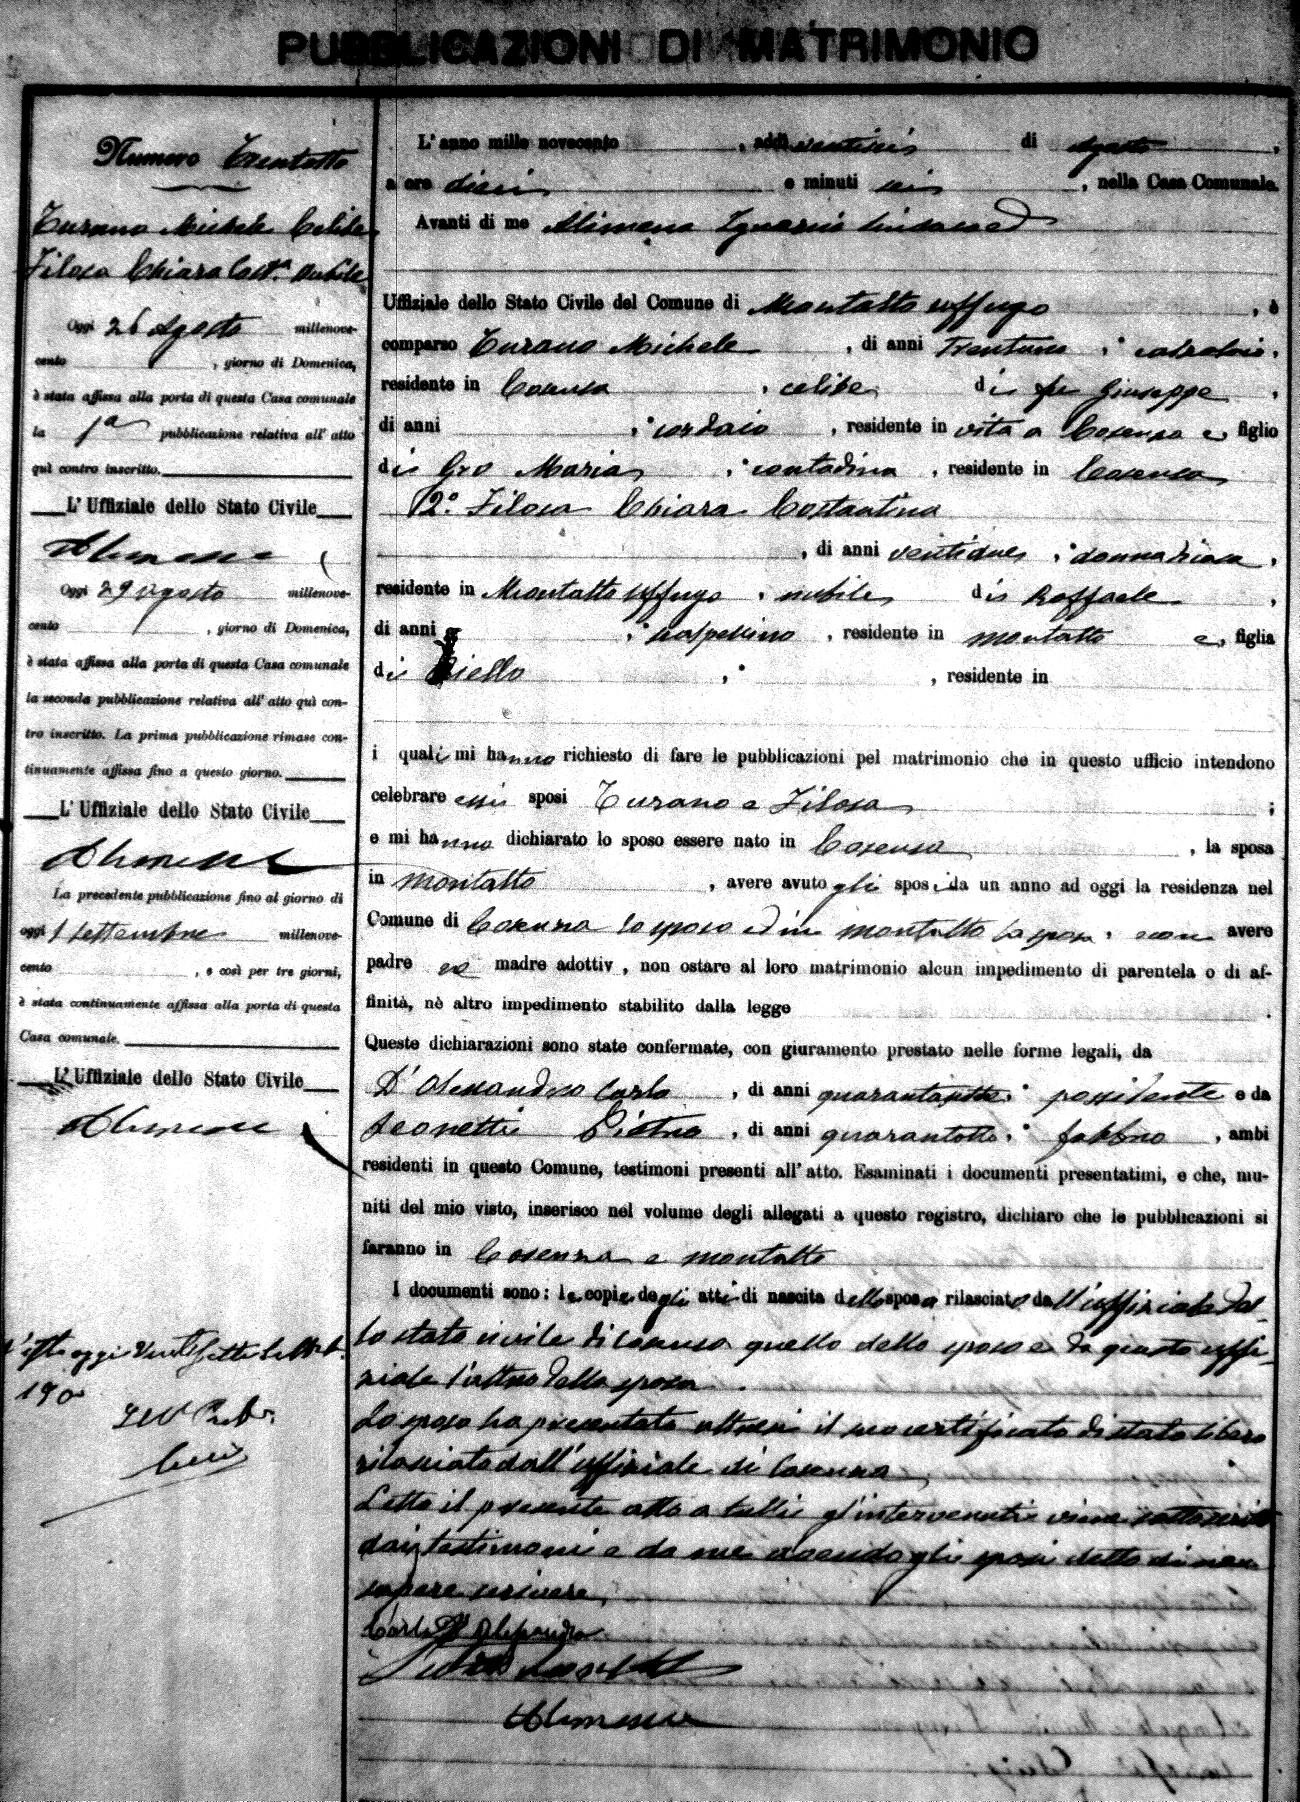 PUBBLICAZIONI DI MATRIMONIO
Numero Trentotto
Turano Michele Celibe
Filosa Chiara Cost.na nubile
Oggi 26 Agosto millenove-
cento , giorno di Domenica,
è stata affissa alla porta di questa Casa comunale
la 1a pubblicazione relativa all' atto
quì contro inscritto.
L'Uffiziale dello Stato Civile
Alimena
Oggi 29 Agosto millenove-
cento , giorno di Domenica,
è stata affissa alla porta di questa Casa comunale
la seconda pubblicazione relativa all' atto quì con-
tro inscritto. La prima pubblicazione rimase con-
tinuamente affissa fino a questo giorno.
L'Uffiziale dello Stato Civile
Alimena
La precedente pubblicazione fino al giorno di
oggi 1 Settembre millenove-
cento , e così per tre giorni,
è stata continuamente affissa alla porta di questa
Casa comunale.
L'Uffiziale dello Stato Civile
Alimena
oggi Ventisette
190
L'anno mille novecento , addì ventisei di Agosto ,
a ore dieci e minuti sei , nella Casa Comunale.
Avanti di me Alimena Ignazio Sindaco
Uffiziale dello Stato Civile del Comune di Montalto Uffugo , è
comparso Turano Michele , di anni Trentuno , ,
residente in Cosenza , celibe di fu Giuseppe ,
di anni , cordaio , residente in vita a Cosenza e, figlio
di Gro Maria , contadina , residente in Cosenza
2° Filosa Chiara Costantina
, di anni ventidue , donna di casa ,
residente in Montalto Uffugo , nubile di Raffaele ,
di anni , scalpellino , residente in Montalto e, figlia
di , , residente in
i quali mi hanno richiesto di fare le pubblicazioni pel matrimonio che in questo ufficio intendono
celebrare essi sposi Turano e Filosa ;
e mi hanno dichiarato lo sposo essere nato in Cosenza , la sposa
in Montalto , avere avuto gli sposi da un anno ad oggi la residenza nel
Comune di Cosenza lo sposo ed in Montalto la sposa , non avere
padre madre adottiv , non ostare al loro matrimonio alcun impedimento di parentela o di af-
finità, nè altro impedimento stabilito dalla legge .
Queste dichiarazioni sono state confermate, con giuramento prestato nelle forme legali, da
D'Alessandro Carlo , di anni , possidente e da
Leonetti Pietro , di anni quarantotto , fabbro , ambi
residenti in questo Comune, testimoni presenti all' atto. Esaminati i documenti presentatimi, e che, mu-
niti del mio visto, inserisco nel volume degli allegati a questo registro, dichiaro che le pubblicazioni si
faranno in Cosenza e Montalto
I documenti sono: le copie degli atti di nascita dello sposo rilasciato dall'uffiziale del-
lo stato civile di Cosenza quello dello sposo e da questo uffi-
ziale l'altro della sposa .
Lo sposo ha presentato altresì il suo certificato di stato libero
rilasciato dall'uffiziale di Cosenza
Letto il presente atto a tutti gl'intervenuti viene sottoscritto
dai testimoni e da me avendo gli sposi detto di non
sapere scrivere
Carlo D'Alessandro
Alimena